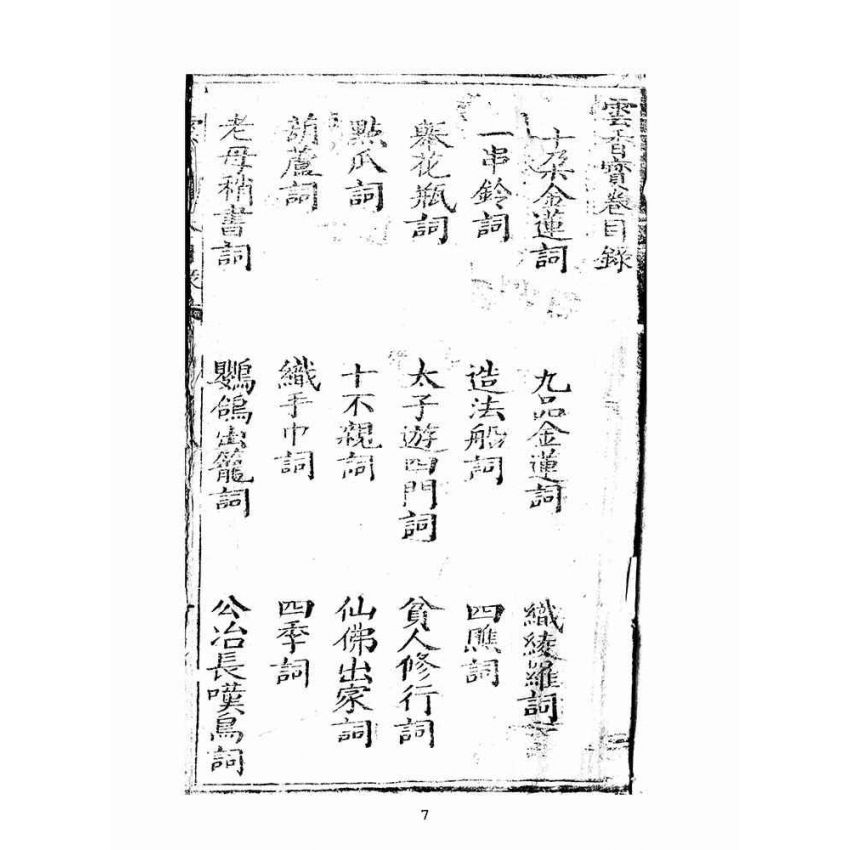 雲香寳卷目錄
十朶金蓮詞 九品金蓮詞 織綾羅詞
一串鈴詞 造法船詞 四瞧詞
舉花瓶詞 太子遊四門詞 貧人修行詞
點瓜詞 十不親詞 仙佛出家詞
葫蘆詞 織手巾詞 四季詞
老母稍書詞 鸚鴿出籠詞 公冶長嘆鳥詞
7